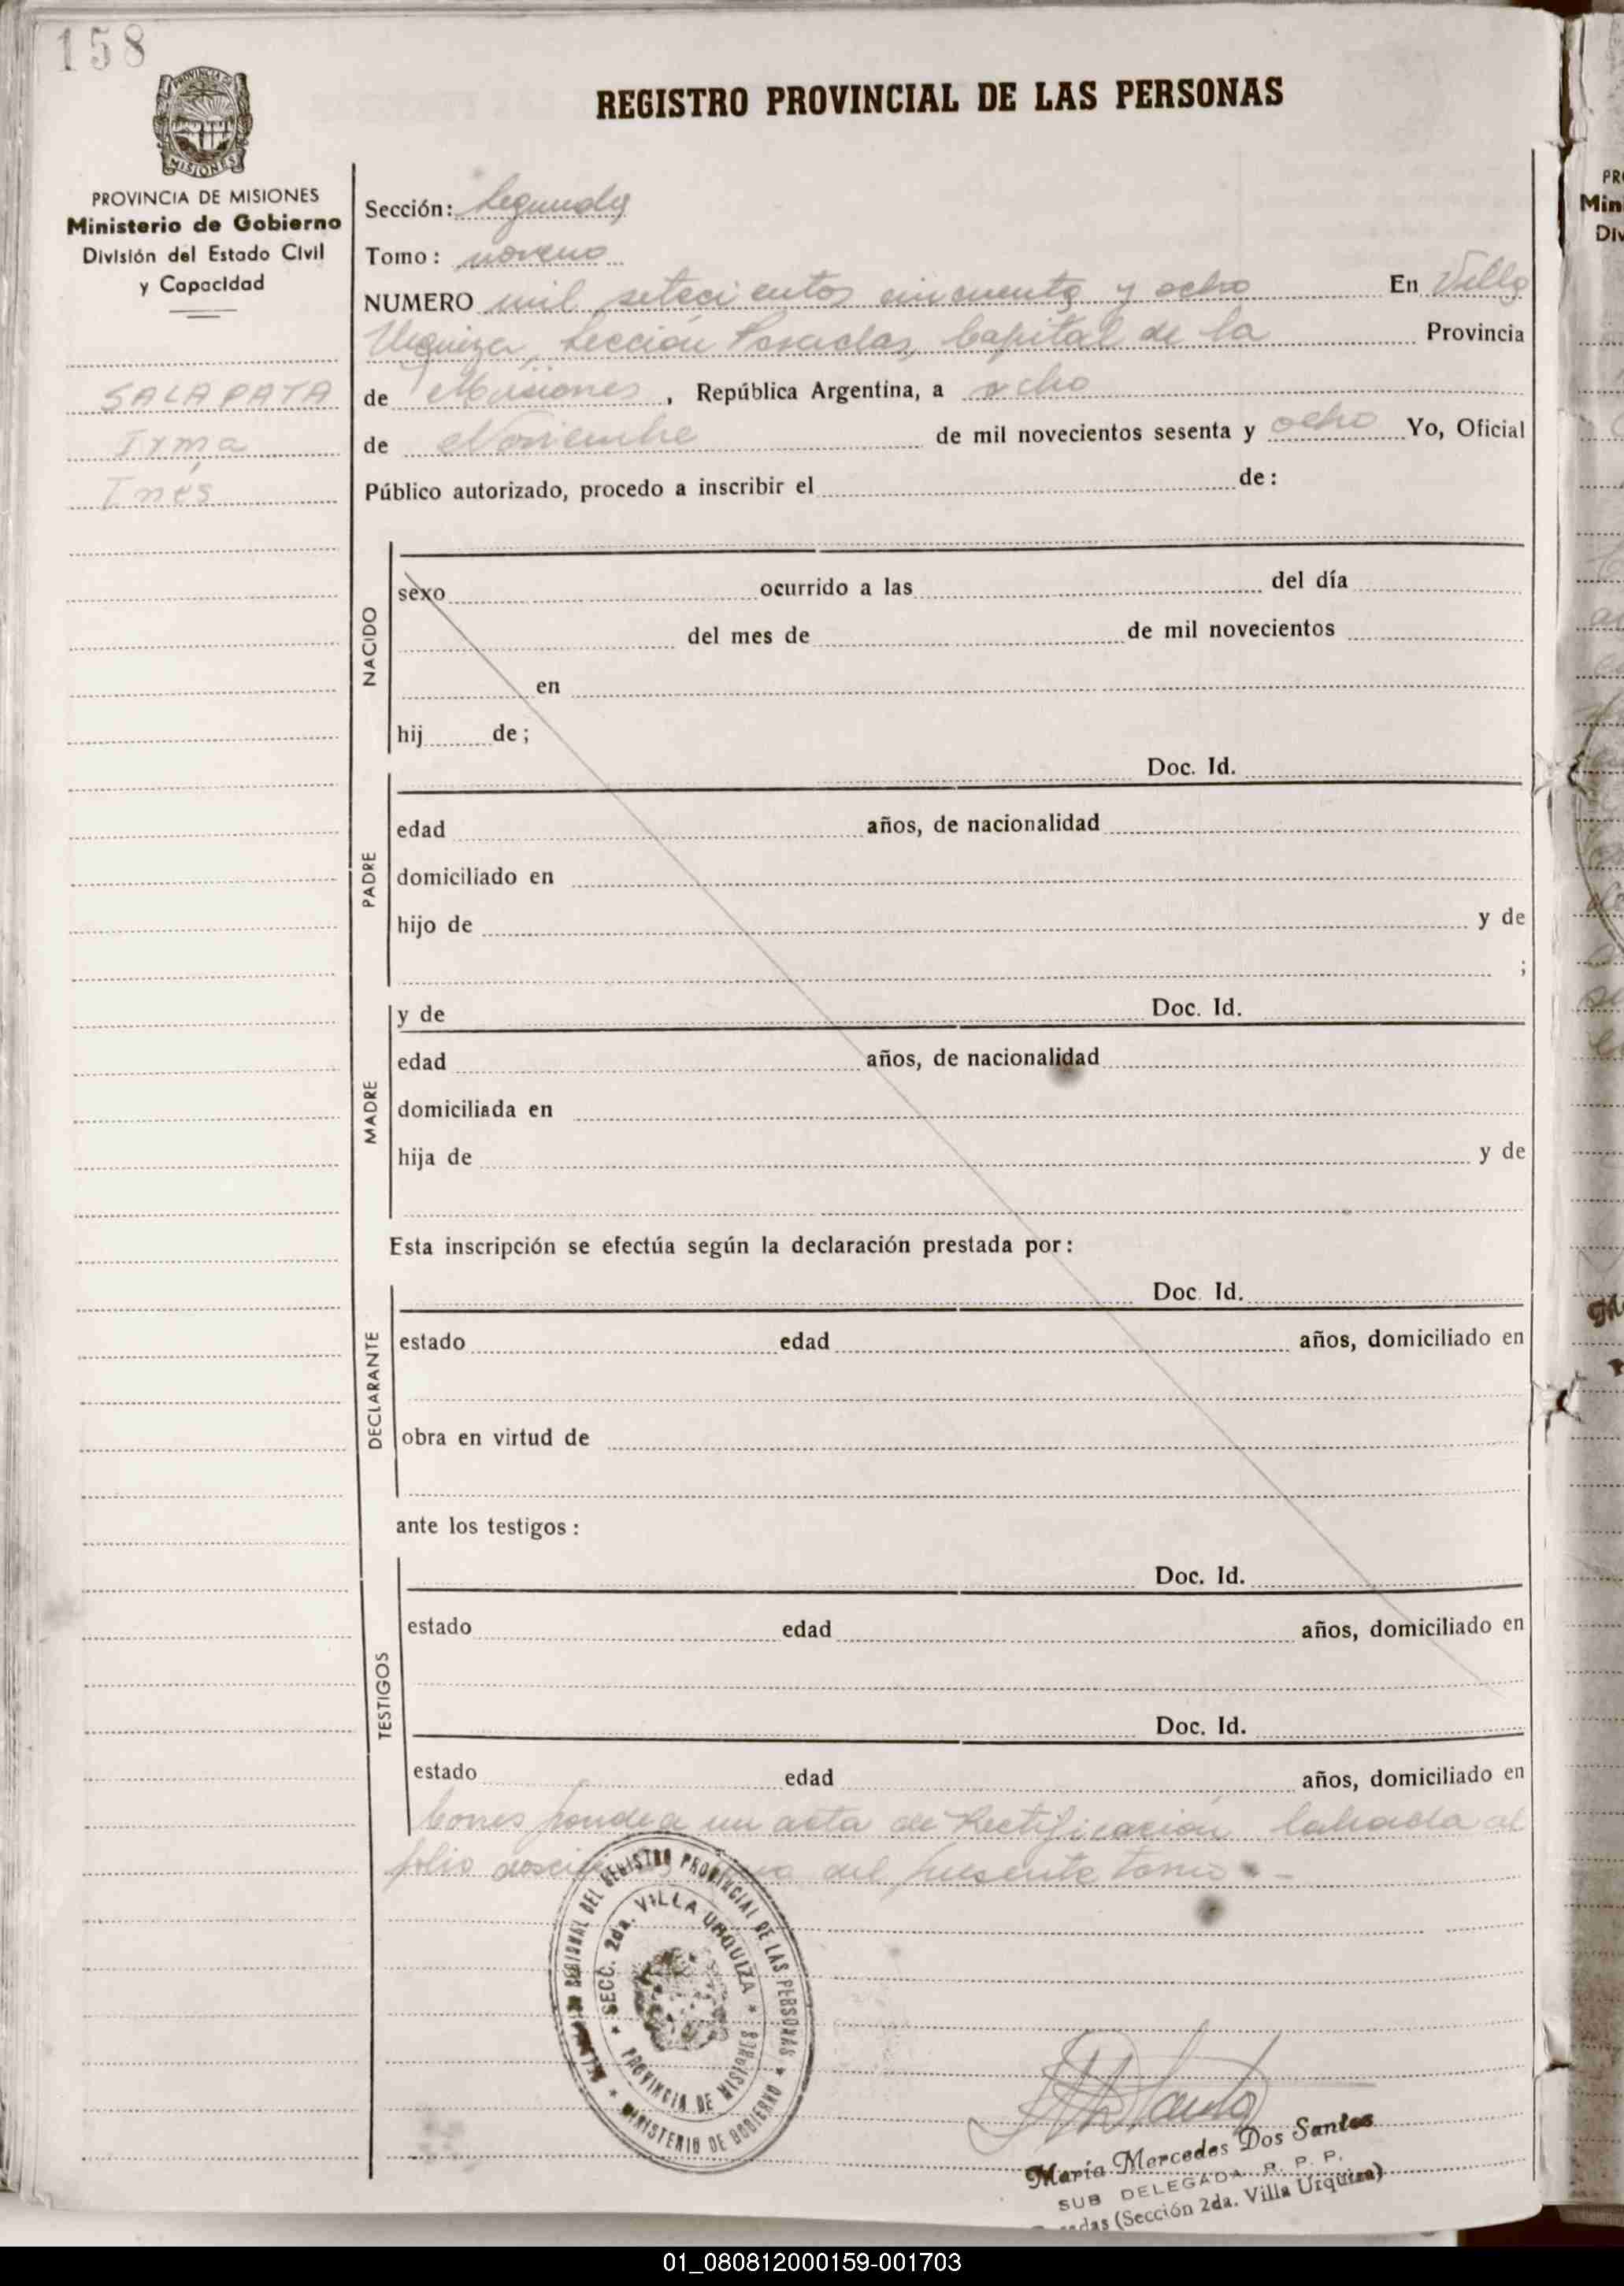 158
REGISTRO PROVINCIAL DE LAS PERSONAS
PROVINCIA DE MISIONES
Ministerio de Gobierno
División del Estado Civil
y Capacidad
SALAPATA
Irma
Inés
Sección: Segunda
Tomo: noveno
NUMERO mil setecientos cincuenta y ocho En Villa
Urquiza, Sección Posadas, Capital de la Provincia
de Misiones, República Argentina, a ocho
de Noviembre de mil novecientos sesenta y ocho Yo, Oficial
Público autorizado, procedo a inscribir el de:
NACIDO
sexo ocurrido a las del día
del mes de de mil novecientos
en
hij de;
PADRE
Doc. Id.
edad años, de nacionalidad
domiciliado en
hijo de y de
;
MADRE
y de Doc. Id.
edad años, de nacionalidad
domiciliada en
hija de y de
Esta inscripción se efectúa según la declaración prestada por:
DECLARANTE
Doc. Id.
estado edad años, domiciliado en
obra en virtud de
ante los testigos:
TESTIGOS
Doc. Id.
estado edad años, domiciliado en
Doc. Id.
estado edad años, domiciliado en
Corresponde a un acta de Rectificación labrada al
folio del presente tomo.-
REGIONAL DEL REGISTRO PROVINCIAL DE LAS PERSONAS
* MINISTERIO DE GOBIERNO *
* SECC. 2da. VILLA URQUIZA *
PROVINCIA DE MISIONES
María Mercedes Dos Santos
SUB DELEGADA R. P. P.
(Sección 2da. Villa Urquiza)
PR
Min
Div
01_080812000159-001703